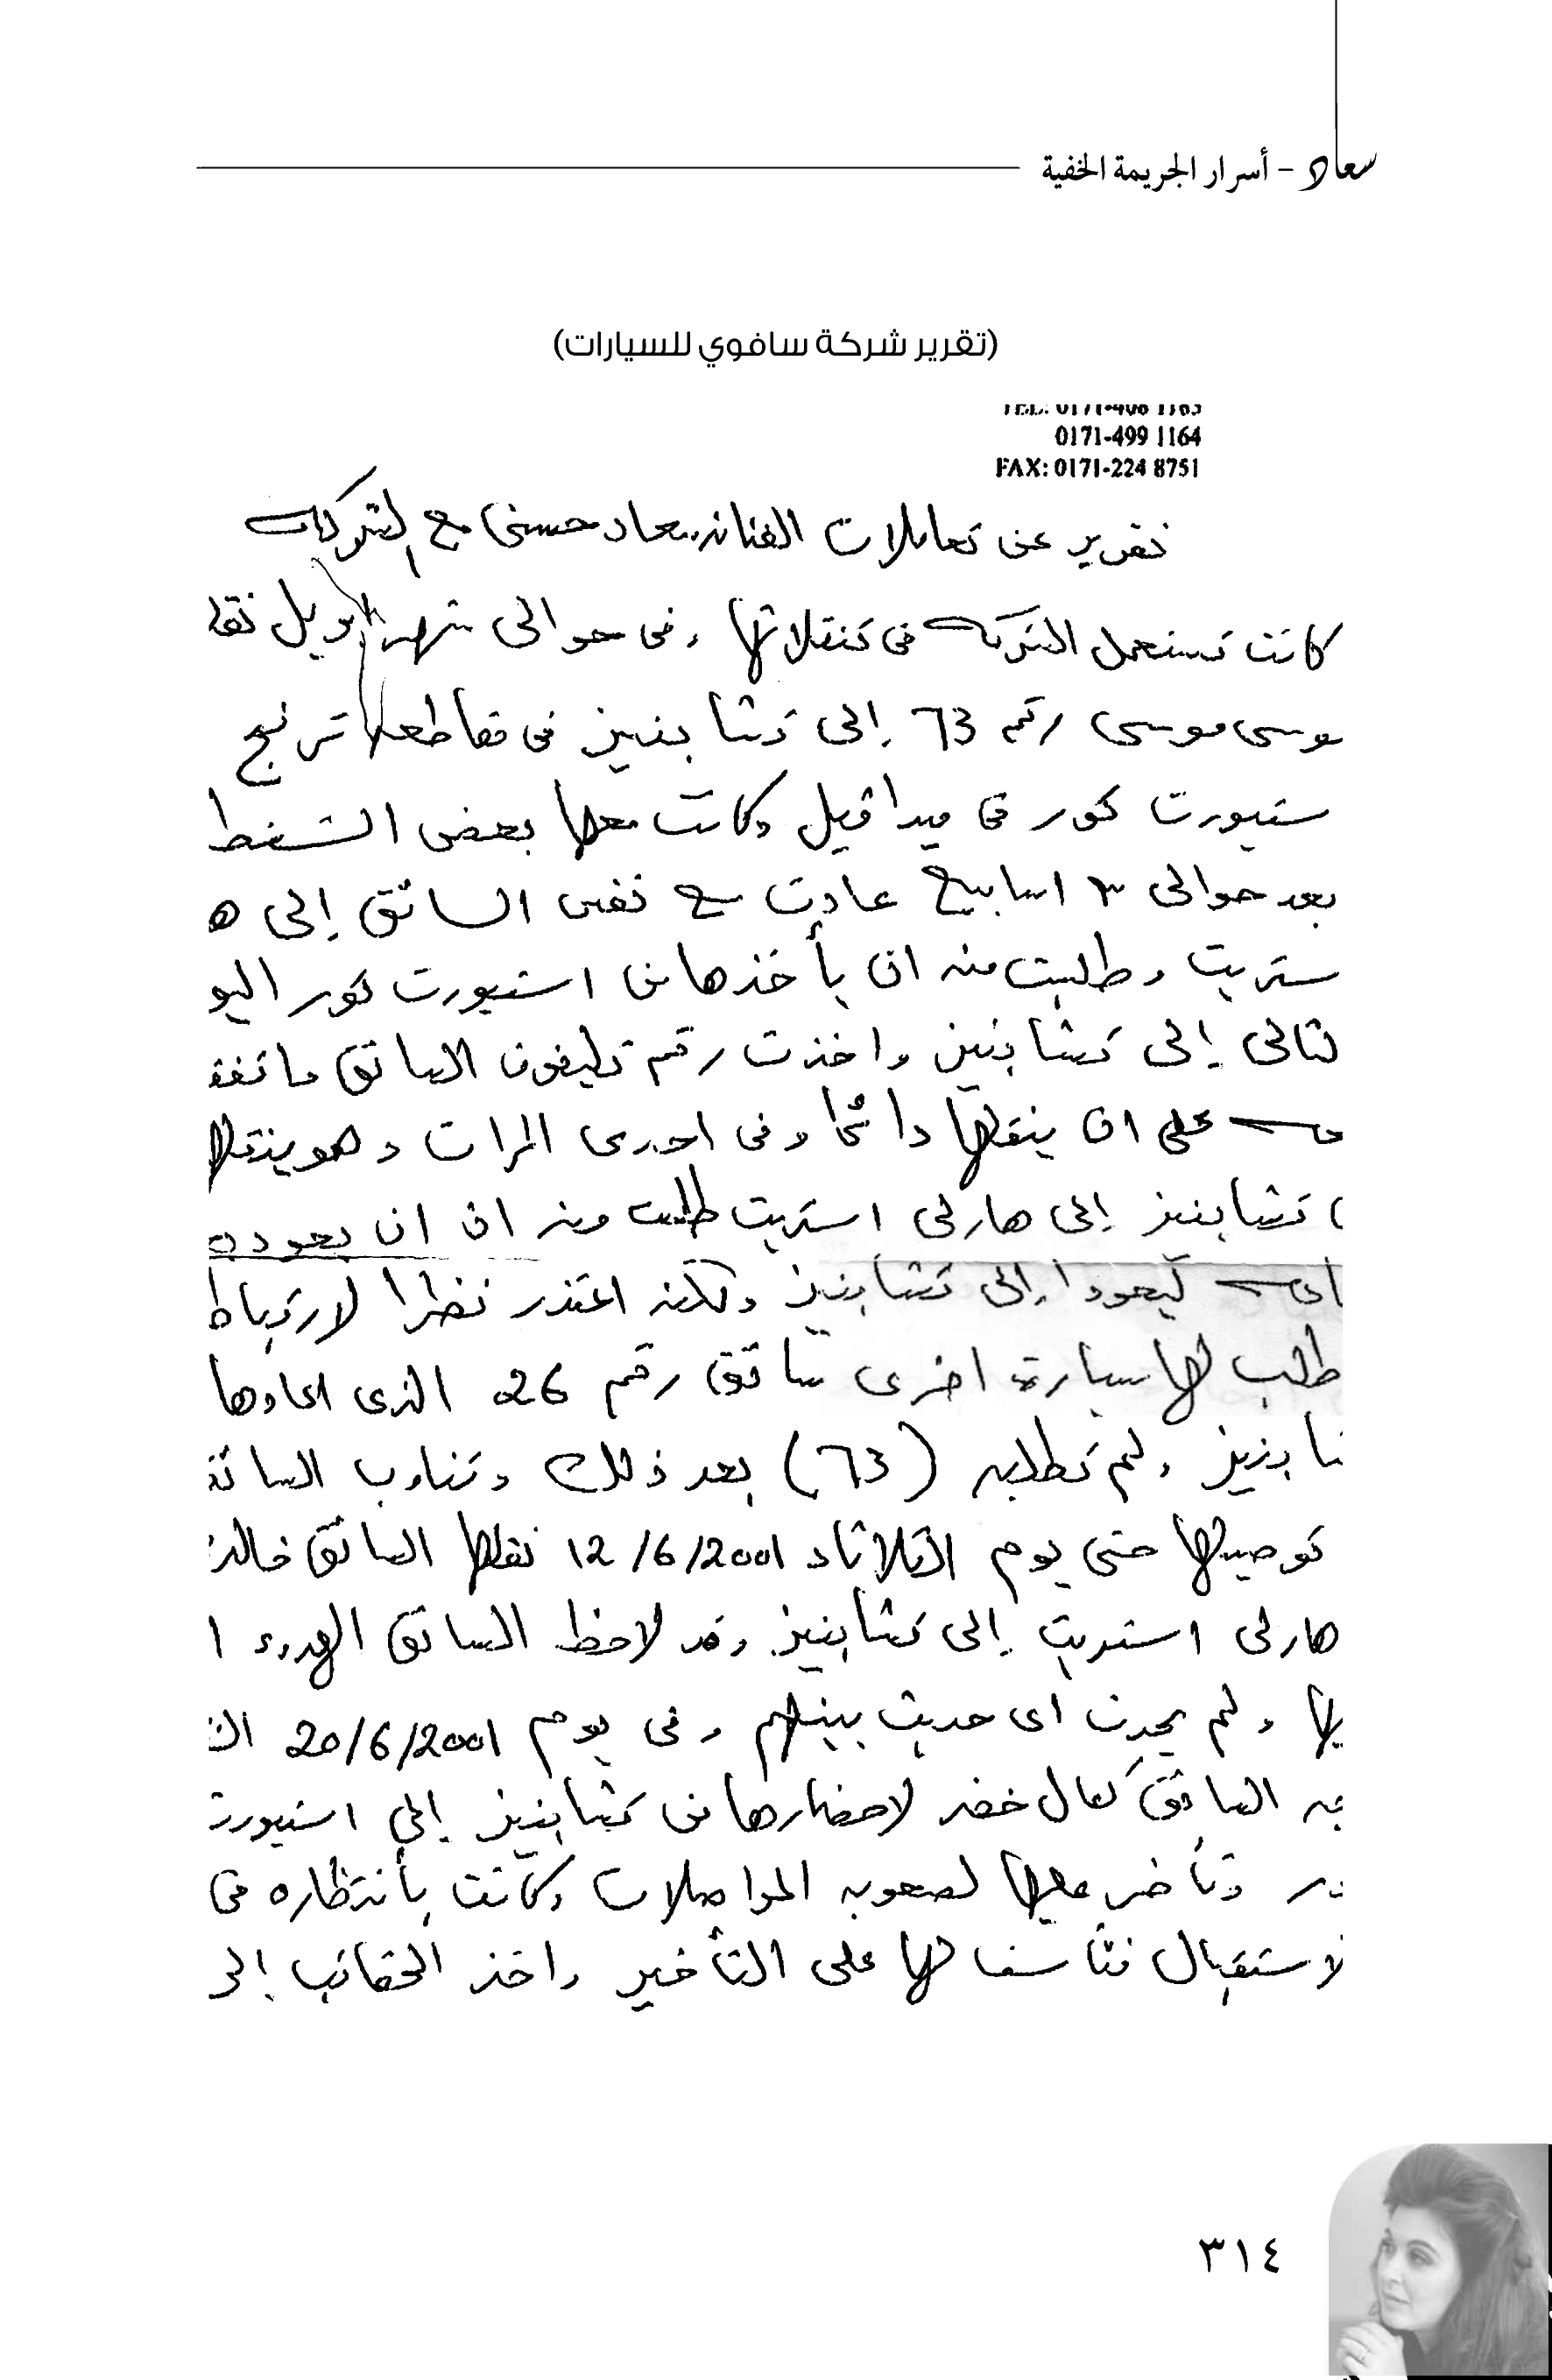 سعاد - أسرار الجريمة الخفية
(تقرير شركة سافوي للسيارات)
0171-499 1164
FAX: 0171-224 8751
تقرير عن تعاملات الفنانه سعاد حسنى مع الشركه
كانت تستعمل الشركه فى تنقلاتها وفى حوالى شهر ابريل نقلـ
موسى موسى رقم 63 إلى تشابنيز فى مقاطعه ترنج
ستبورت كور فى ميدافيل وكانت معها بعض الشنط
بعد حوالى ٣ اسابيع عادت مع نفس السائق إلى هـ
ستريت وطلبت منه ان يأخذها من استبورت كور اليو
لتالى إلى تشابنيز واخذت رقم تليفون السائق واتفقـ
على ان ينقلها دائما وفى احدى المرات وهو ينقلها
تشابنيز إلى هارلى استريت طلبت منه ان ان يعود
ليعودا إلى تشابنيز ولكنه اعتذر نظرا لارتباط
طلب لها سيارة اخرى سائق رقم 26 الذى اعادها
ـا بنيز ولم تطلبه (63) بعد ذلك وتناوب السائـ
توصيلها حتى يوم الثلاثاء 12/6/2001 نقلها السائق خالد
هارلى استريت إلى تشابنيز وقد لاحظ السائق الهدوء ا
ـيها ولم يحدث اى حديث بينهم وفى يوم 20/6/2001 الـ
ـجه السائق كمال خضر لاحضارها من تشابنيز إلى استبورت
ور وتأخر عليها لصعوبه المواصلات وكانت بأنتظاره فى
لاستقبال فتأسف لها على التأخير واخذ الحقائب إلى
٣١٤